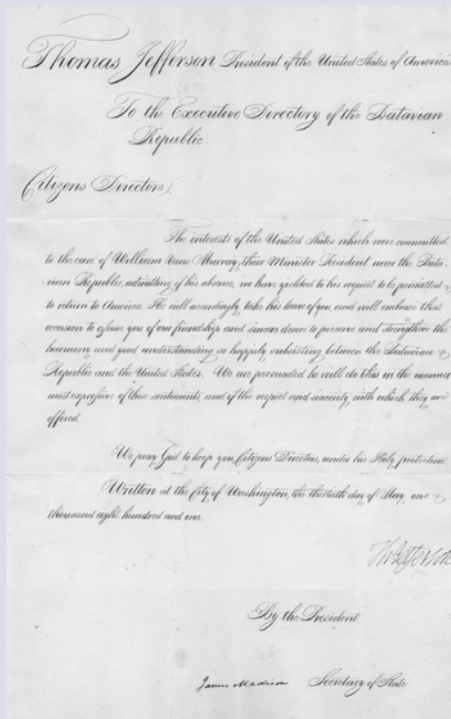 Thomas Jefferson President of the United States of America
To the Executive Directory of the Batavian
Republic
Citizens Directors,
The interests of the United States which were committed
to the care of William Vans Murray, their Minister Resident near the Bata-
vian Republic, admitting of his absence, we have yielded to his request to be permitted
to return to America. He will accordingly take his leave of you, and will embrace that
occasion to assure you of our friendship and sincere desire to preserve and strengthen the
harmony and good understanding so happily subsisting between the Batavian
Republic and the United States. We are persuaded he will do this in the manner
most expressive of these sentiments, and of the respect and sincerity with which they are
offered.
We pray God to keep you, Citizens Directors, under his Holy protection.
Written at the City of Washington, the thirtieth day of May, one
thousand eight hundred and one.
Th Jefferson
By the President,
James Madison Secretary of State